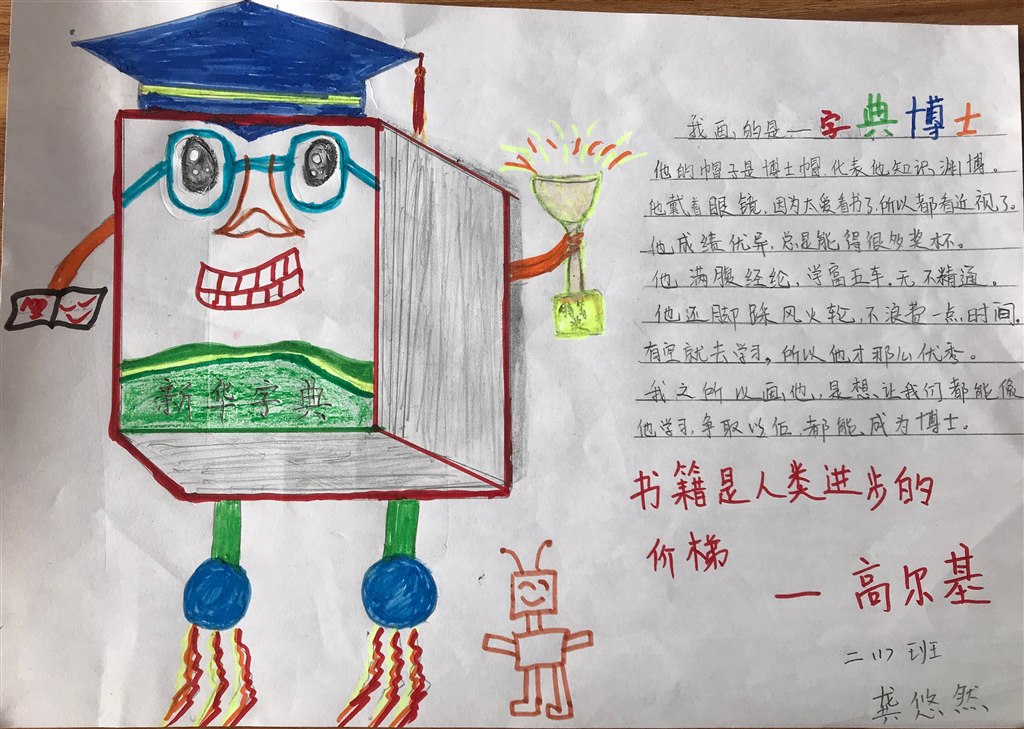 我画的是—字典博士
他的帽子是博士帽,代表他知识渊博。
他戴着眼镜,因为太爱看书了,所以都看近视了。
他成绩优异,总是能得很多奖杯。
他满腹经纶,学富五车,无不精通。
他还脚踩风火轮,不浪费一点时间,
有空就去学习,所以他才那么优秀。
我之所以画他,是想让我们都能像
他学习,争取以后都能成为博士。
书籍是人类进步的
价梯
— 高尔基
二(1)班
龚悠然
新华字典